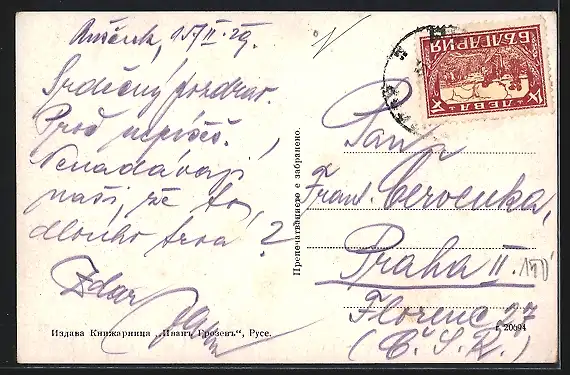 Ruščuk, 15/II. 29.
Srdečný pozdrav.
Proč nepíšeš!
Nenadávají
naši, že to
dlouho trvá?
Zdar
Издава Книжарница „Иванъ Грозевъ“, Русе.
Препечатванието е забранено.
БЪЛГАРИЯ
1 ЛЕВЪ 1
Pan
Frant. Červenka,
Praha II.
Florenc 27
(Č. S. R.)
20694